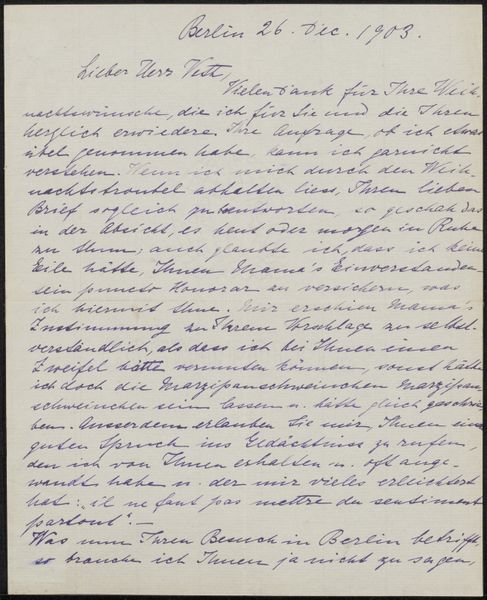 Berlin 26. Dec. 1903.
Lieber Herr Veth,
Vielen Dank für Ihre Weih-
nachtswünsche, die ich für Sie und die Ihren
herzlich erwiedere. Ihre Anfrage, ob ich etwas
übel genommen habe, kann ich garnicht
verstehen. Wenn ich mich durch den Weih-
nachtstroubel abhalten liess, Ihren lieben
Brief sogleich zu beantworten, so geschah das
in der Absicht, es heut oder morgen in Ruhe
zu thun; auch glaubte ich, dass ich keine
Eile hätte, Ihnen Mama's Einverstanden-
sein puncto Honorar zu versichern, was
ich hiermit thue. Mir erschien Mama's
Zustimmung zu Ihrem Vorschlage zu selbst-
verständlich, als dass ich bei Ihnen einen
Zweifel hätte vermuten können, sonst hätte
ich doch die Marzipanschweinchen Marzipan-
schweinchen sein lassen u. hätte gleich geschrie-
ben. Ausserdem erlauben Sie mir, Ihnen
guten Spruch ins Gedächtniss zu rufen,
den ich von Ihnen erhalten u. oft ange-
wandt habe u. der mir vieles erleichtert
hat: „il ne faut pas mettre du sentiment
partout“! —
Was nun Ihren Besuch in Berlin betrifft,
so brauche ich Ihnen ja nicht zu sagen,